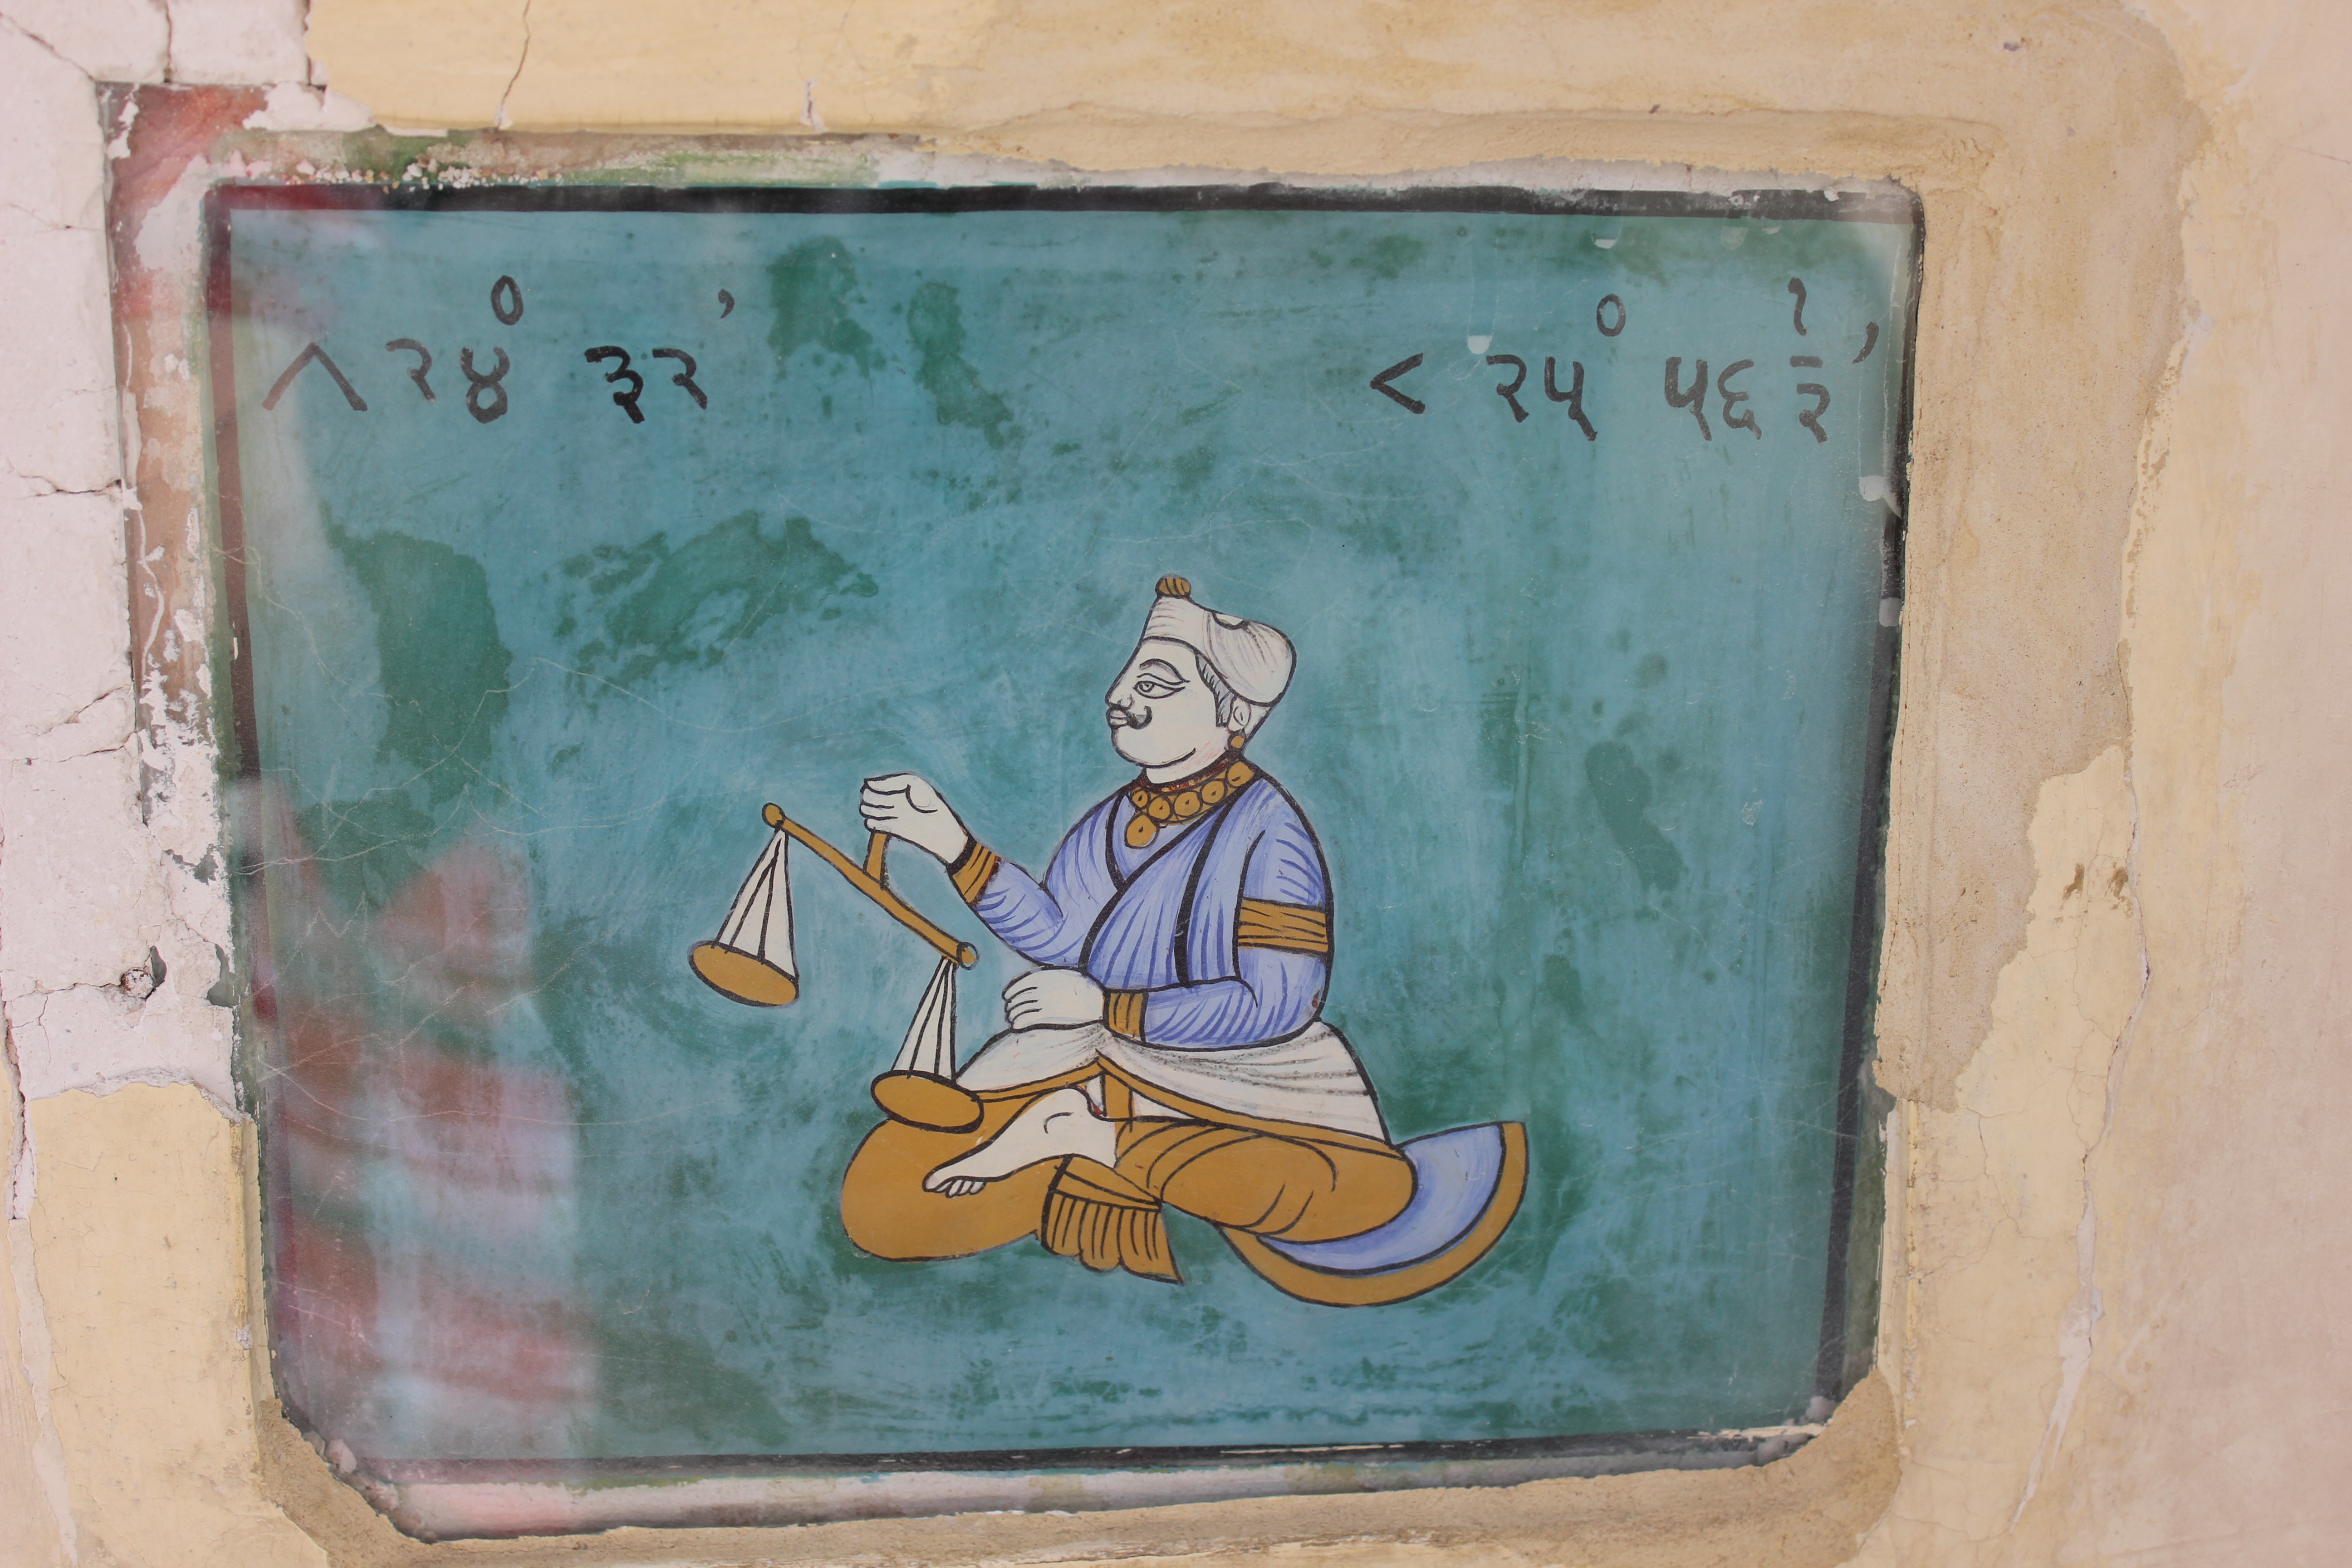 ^ २४° ३२’
< २५° ५६ १/३’